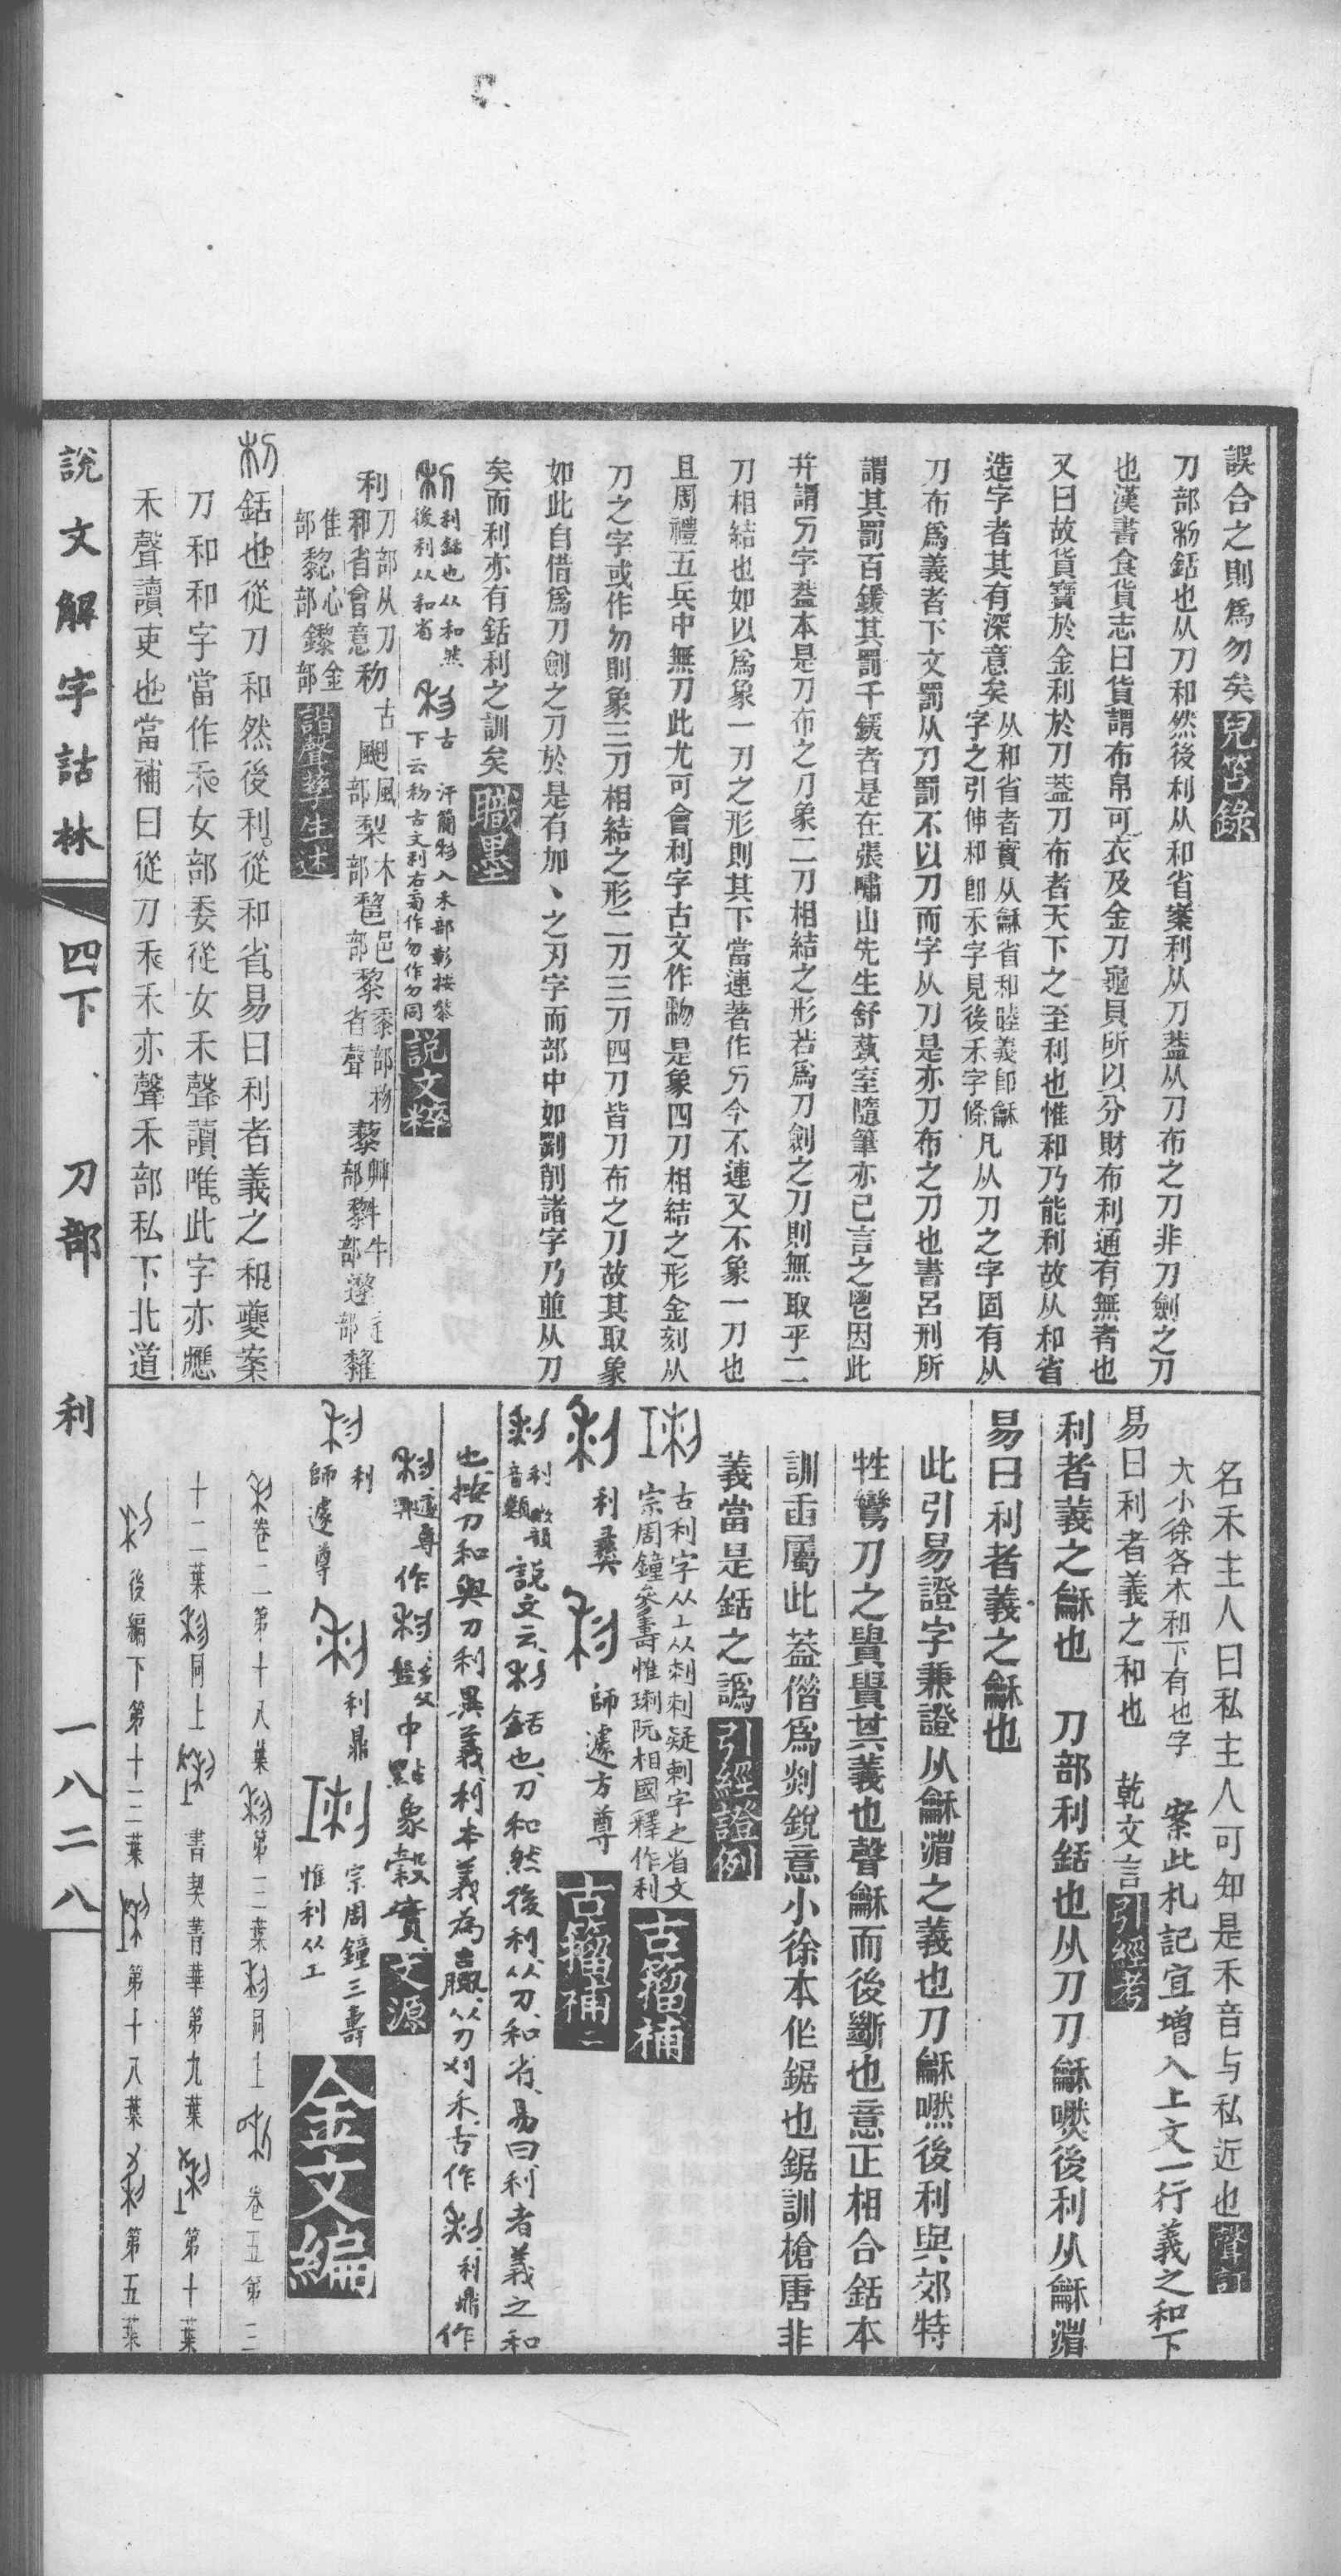 誤合之則爲勿矣 兒笘錄
刀部利銛也从刀和然後利从和省案利从刀葢从刀布之刀非刀劍之刀
也漢書食貨志曰貨謂布帛可衣及金刀龜貝所以分財布利通有無者也
又曰故貨寶於金利於刀葢刀布者天下之至利也惟和乃能利故从和省
造字者其有深意矣从和省者實从龢省和睦義卽龢
字之引伸和卽禾字見後禾字條凡从刀之字固有从
刀布爲義者下文罰从刀罰不以刀而字从刀是亦刀布之刀也書呂刑所
謂其罰百鍰其罰千鍰者是在張嘯山先生舒蓺室隨筆亦已言之鬯因此
并謂字葢本是刀布之刀象二刀相結之形若爲刀劍之刀則無取乎二
刀相結也如以爲象一刀之形則其下當連著作今不連又不象一刀也
且周禮五兵中無刀此尤可會利字古文作是象四刀相結之形金刻从
刀之字或作勿則象三刀相結之形二刀三刀四刀皆刀布之刀故其取象
如此自借爲刀劍之刀於是有加丶之刃字而部中如劉削諸字乃並从刀
矣而利亦有銛利之訓矣 職墨
利銛也从和然
後利从和省
古
下云古文利右旁作勿作同 說文粹
利刀部从刀
和省會意
古
颲風部 梨木部 邑部 黎黍部省聲 藜艸部 牛部 邌辵部
隹部 心部 金部 諧聲孳生述
銛也從刀和然後利從和省易曰利者義之和夔案
刀和和字當作女部委從女禾聲讀唯此字亦應
禾聲讀吏也當補曰從刀禾禾亦聲禾部私下北道
說文解字詁林 四下 刀部 利 一八二八
名禾主人曰私主人可知是禾音与私近也 聲訂
大小徐各木和下有也字 案此札記宜增入上文一行義之和下
易曰利者義之和也 乾文言 引經考
利者義之龢也 刀部利銛也从刀刀龢嘫後利从龢渻
易曰利者義之龢也
此引易證字兼證从龢渻之義也刀龢嘫後利與郊特
牲鸞刀之貴貴其義也聲龢而後斷也意正相合銛本
訓臿屬此葢偕爲剡銳意小徐本作鋸也鋸訓槍唐非
義當是銛之譌 引經證例
古利字从工从刺刺疑剌字之省文
宗周鐘參壽惟琍阮相國釋作利 古籀補
利彝 師遽方尊 古籀補二
說文云銛也刀和然後利从刀和省易曰利者義之和
也按刀和與刀利異義利本義為贏从刀刈禾古作利鼎作
師遽尊作盤中點象穀實 文源
利
師遽尊 利鼎 宗周鐘三壽
惟利从工 金文編
卷二第十八葉 第三葉 同上 卷五第三
十二葉 同上 書契菁華第九葉 第十葉
後編下第十三葉 第十八葉 第五葉